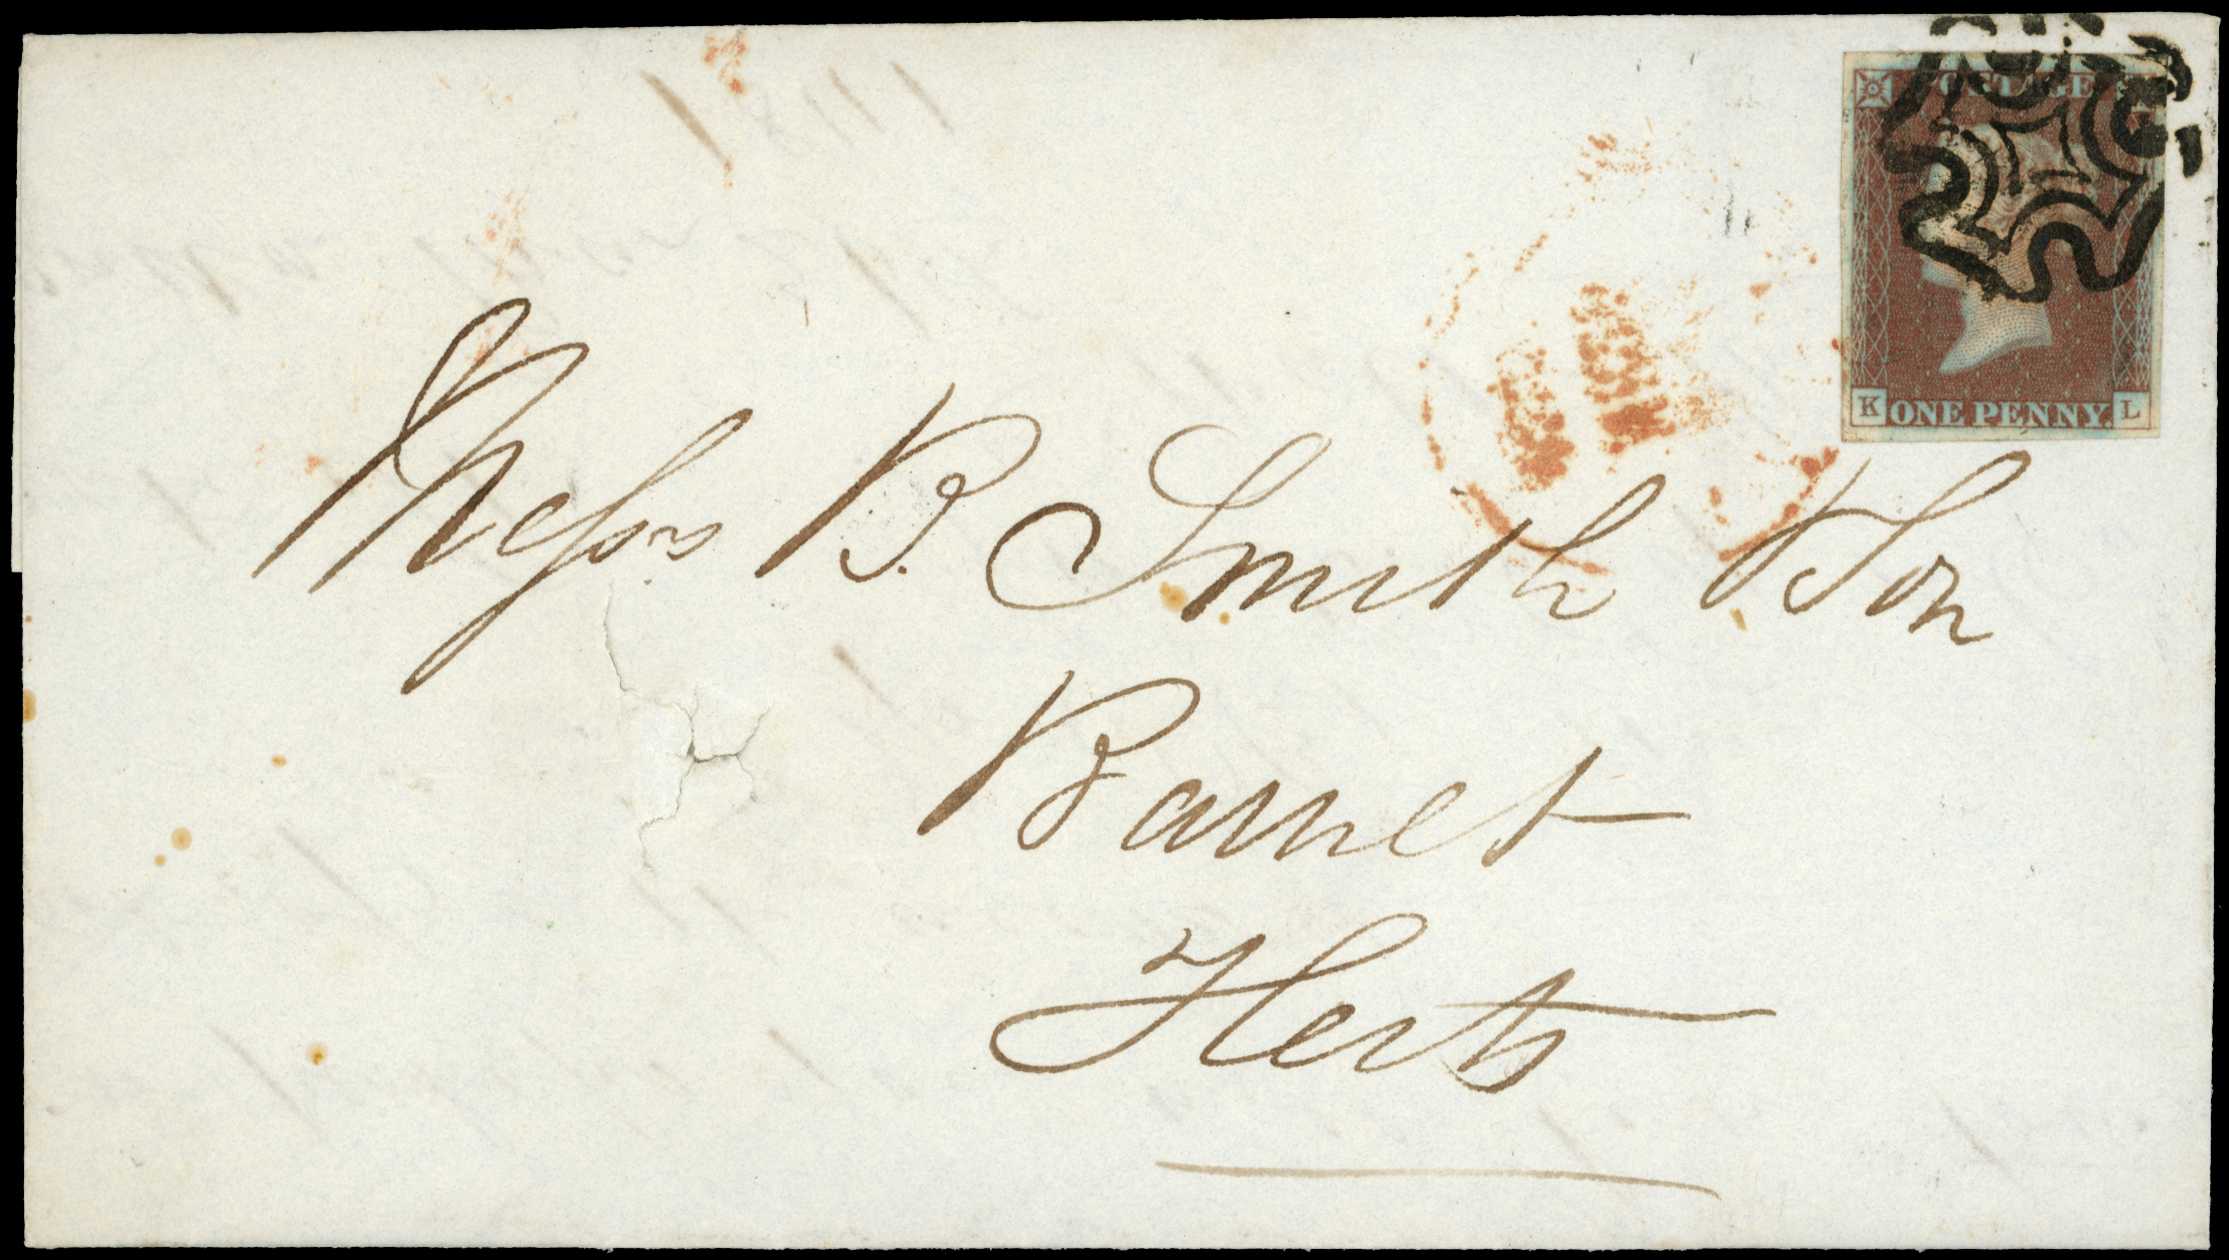 POSTAGE
K ONE PENNY. L
Messrs B. Smith & Son
Barnet
Herts